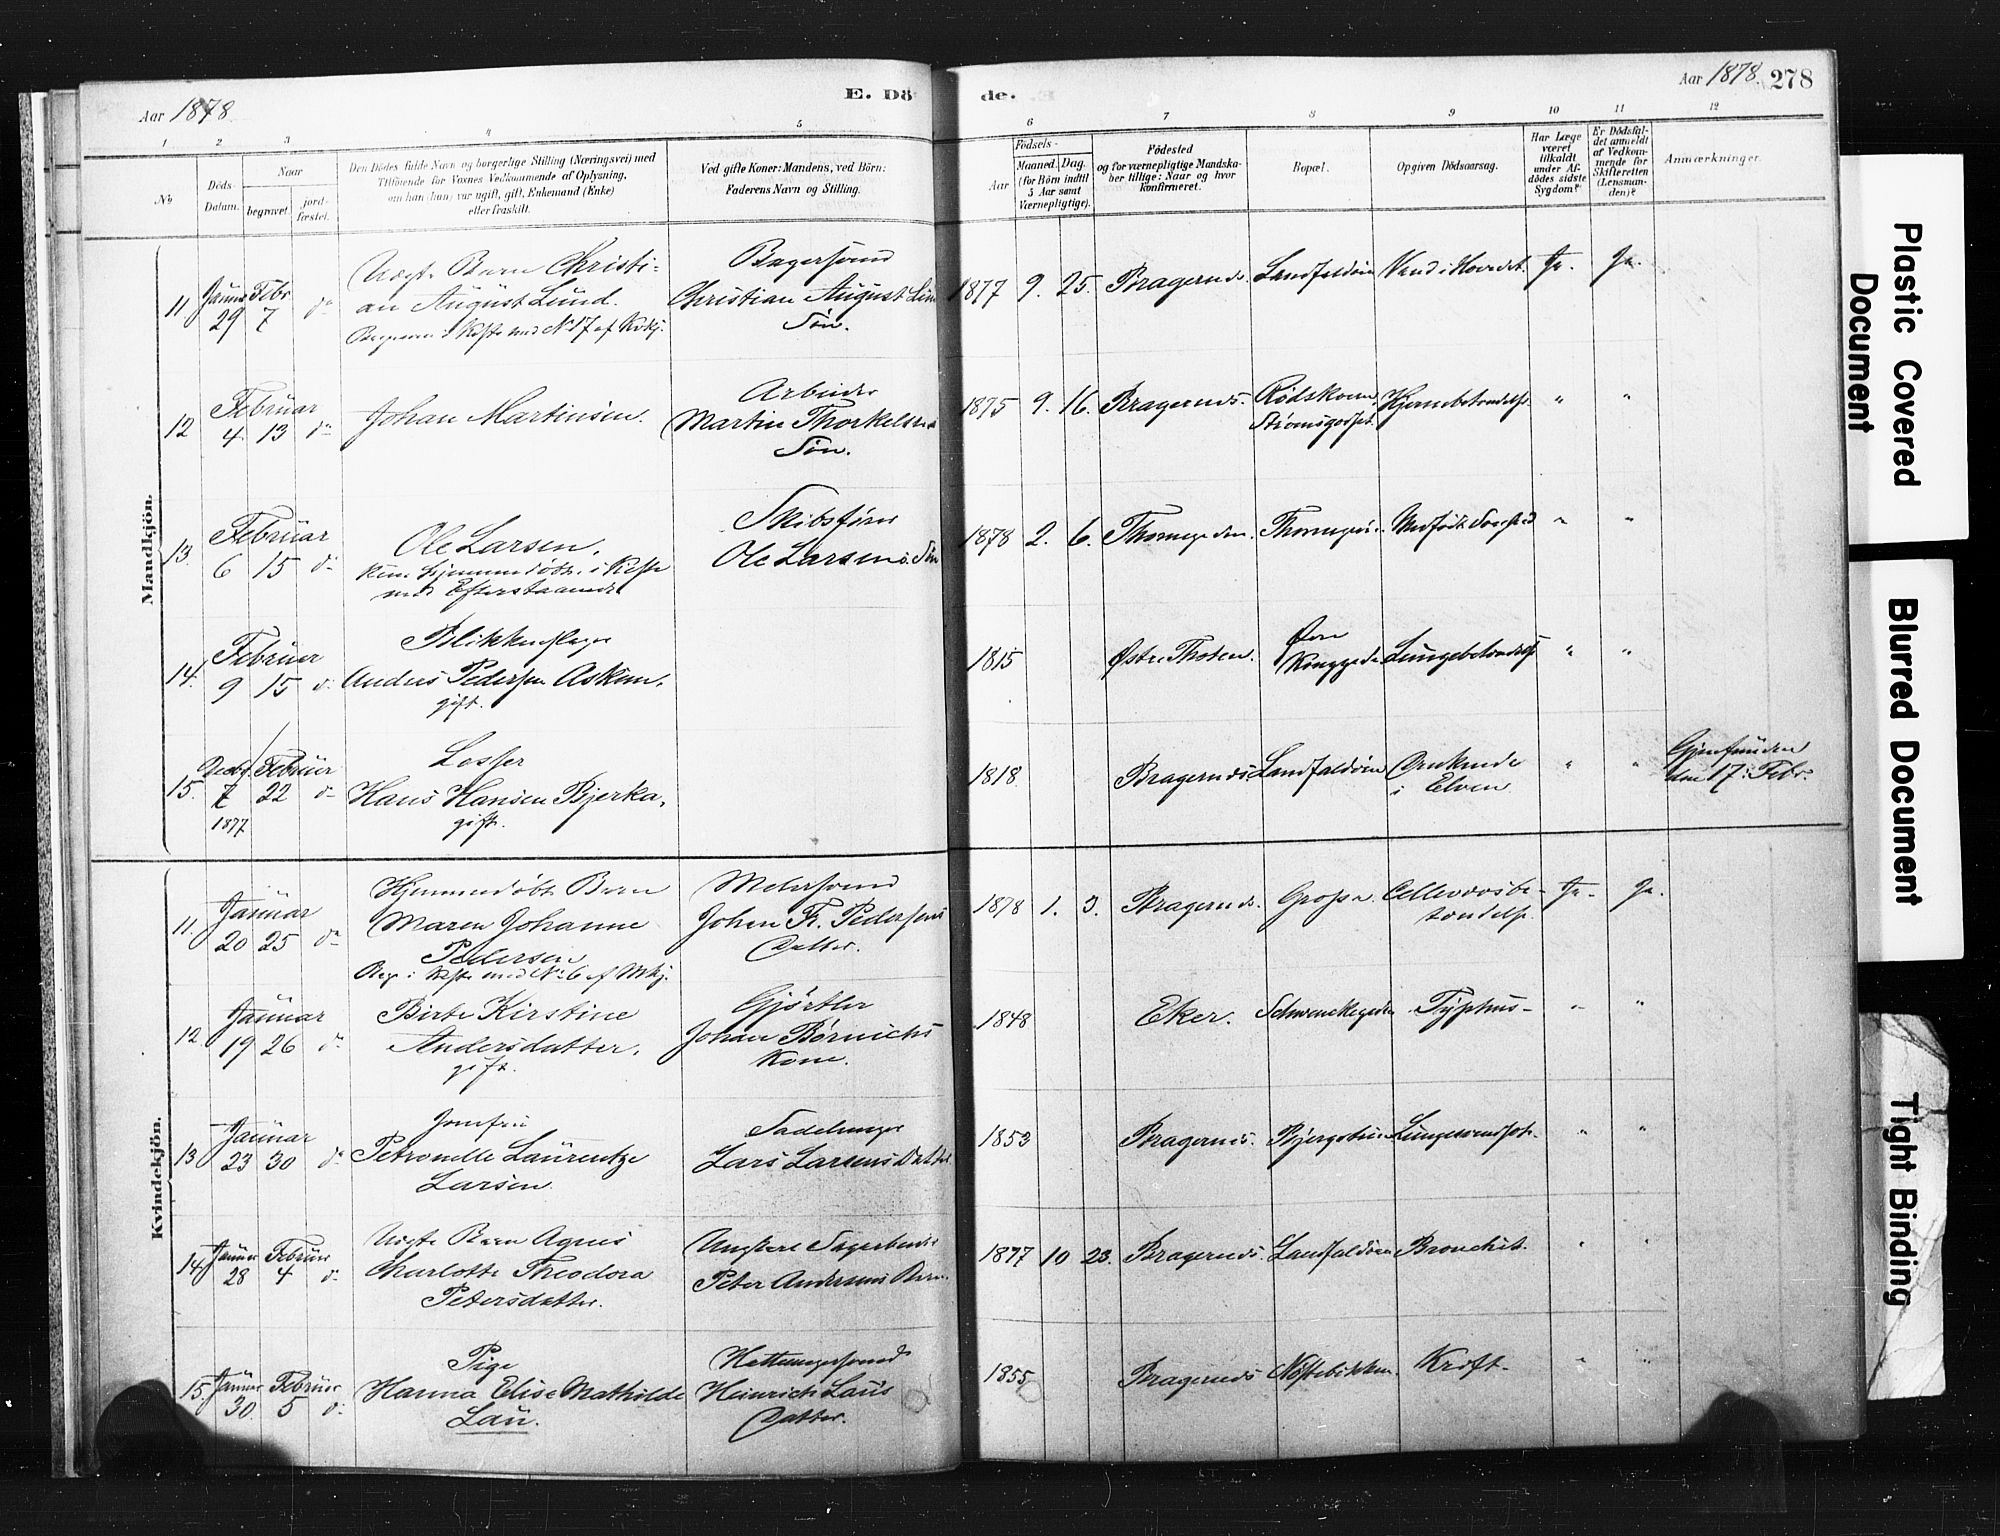 Aar 1878
E. Dö
de.
Aar 1878. 278
1 2 3 4 5
6 7 8 9 10 11 12
No
Döds-
Datum.
Naar
begravet.
jord-
fæstet.
Den Dödes fulde Navn og borgerlige Stilling (Næringsvei) med
Tilföiende for Voxnes Vedkommende af Oplysning,
om han (hun) var ugift, gift, Enkemand (Enke)
eller fraskilt.
Ved gifte Koner: Mandens, ved Börn:
Faderens Navn og Stilling.
Födsels-
Aar
Maaned. Dag.
(for Börn indtil
5 Aar samt
Værnepligtige).
Födested
og for værnepligtige Mandska-
ber tillige: Naar og hvor
konfirmeret.
Bopæl.
Opgiven Dödsaarsag.
Har Læge
været
tilkaldt
under Af-
dödes sidste
Sygdom?
Er Dödsfal-
det anmeldt
af Vedkom-
mende for
Skifteretten
(Lensman-
den)?
Anmærkninger.
Mandkjön.
11 Januar 29 Febr 7 do
Uægte Barn Christi-
an August Lund.
med No 17 af Kvkj.
Bagersvend
Christian August
Søn.
1877 9. 25. Bragernes Landfaldøen Vand i Hovedet. Ja. Ja.
12 Februar
4 13 do
Johan Martinsen.
Arbeider
Martin Thorkelsens
Søn.
1875 9. 16. Bragernes. Strømsgodset. Hjernebetændelse. " "
13. Februar
6 15 do
Ole Larsen.
Kun hjemmedøbt. i Kiste
med Efterstaaende
Skibsfører
Ole Larsens Søn
1878 2. 6. " "
14. Februar
9 15 do
Blikkenslager
Anders Pedersen Askim.
gift.
1815 Østre Thoten. Øvre Lungebetændelse " "
15. Decbr 7 1877 Februar 22 do
Losser
Hans Hansen Bjerka.
gift.
1818. Bragernes Landfaldøen Druknede
i Elven. " "
Gjenfunden
den 17. Febr.
Kvindekjön.
11. Januar
20 25 do
Hjemmedøbt Barn
Maren Johanne
Pedersen
Begr. i Kiste med No 6 af Mkj.
Johan Fr. Pedersens
Datter.
1878 1. 3. Bragernes. Ja. Ja.
12 Januar
19 26 do
Birte Kirstine
Andersdatter.
gift.
Gjørtler
Johan Børnichs
Kone.
1848 Eker. Typhus. " "
13 Januar
23 30 do
Jomfru
Petronelle Laurentze
Larsen
Sadelmager
Lars Larsens Datter
1853 Bragernes. Lungesvindsot. " "
14 Januar 28 Februar 4 do
Uægte Barn Agnes
Charlotte Theodora
Petersdatter.
Ungkarl
Peter Andersens Barn.
1877 10 23. Bragernes. Landfaldøen Bronchit. " "
15. Januar 30 Februar 5 do
Pige
Hanna Elise Mathilde
Lau.
Hattemagersvend
Heinrich Laus
Datter.
1855 Bragernes Kræft. " "
Plastic Covered
Document
Blurred Document
Tight Binding